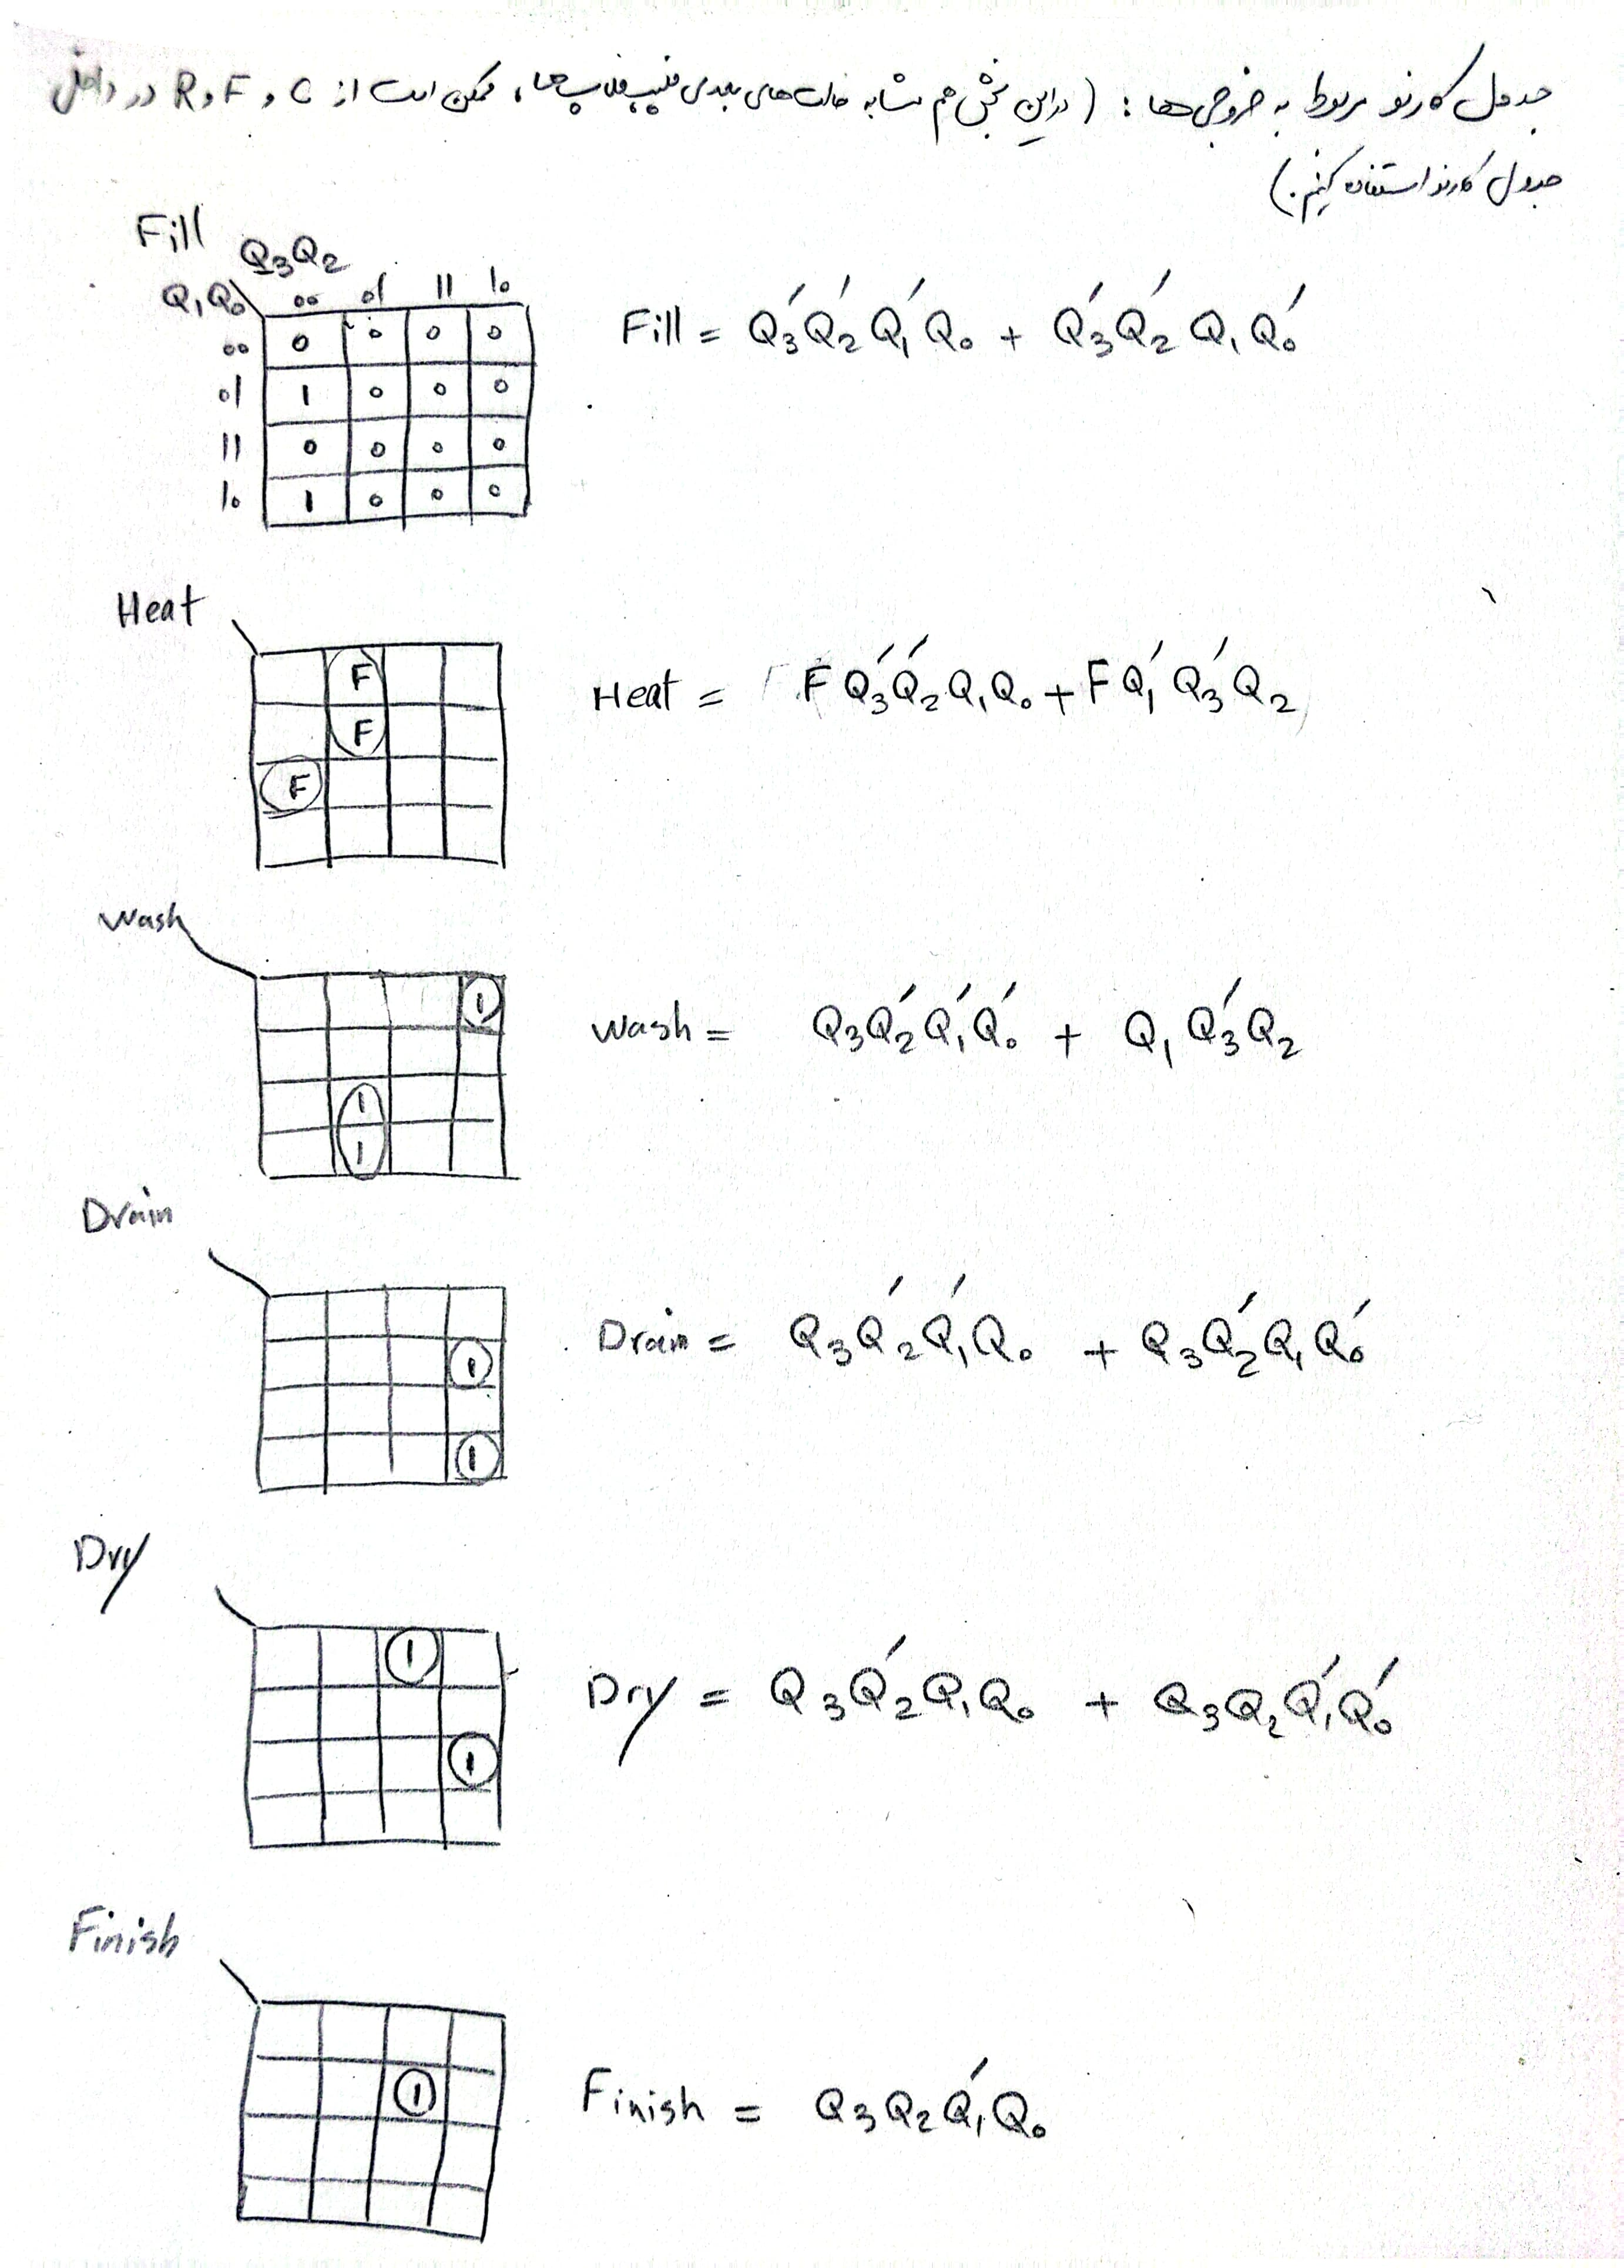 جدول کارنو مربوط به خروجی‌ها : ( در این بخش هم مشابه حالت‌های بعدی فلیپ فلاپ‌ها، ممکن است از C و F و R در داخل
جدول کارنو استفاده کنیم.)
Fill
Q₃Q₂
Q₁Q₀ 00 01 11 10
00 0 0 0 0
01 1 0 0 0
11 0 0 0 0
10 1 0 0 0
Fill = Q₃′Q₂′Q₁′Q₀ + Q₃′Q₂′Q₁Q₀′
Heat
F
F
F
Heat = F Q₃′Q₂′Q₁Q₀ + F Q₁′Q₃′Q₂
Wash
1
1
1
Wash = Q₃Q₂′Q₁′Q₀′ + Q₁Q₃′Q₂
Drain
1
1
Drain = Q₃Q₂′Q₁′Q₀ + Q₃Q₂′Q₁Q₀′
Dry
1
1
Dry = Q₃Q₂′Q₁Q₀ + Q₃Q₂Q₁′Q₀′
Finish
1
Finish = Q₃Q₂Q₁′Q₀